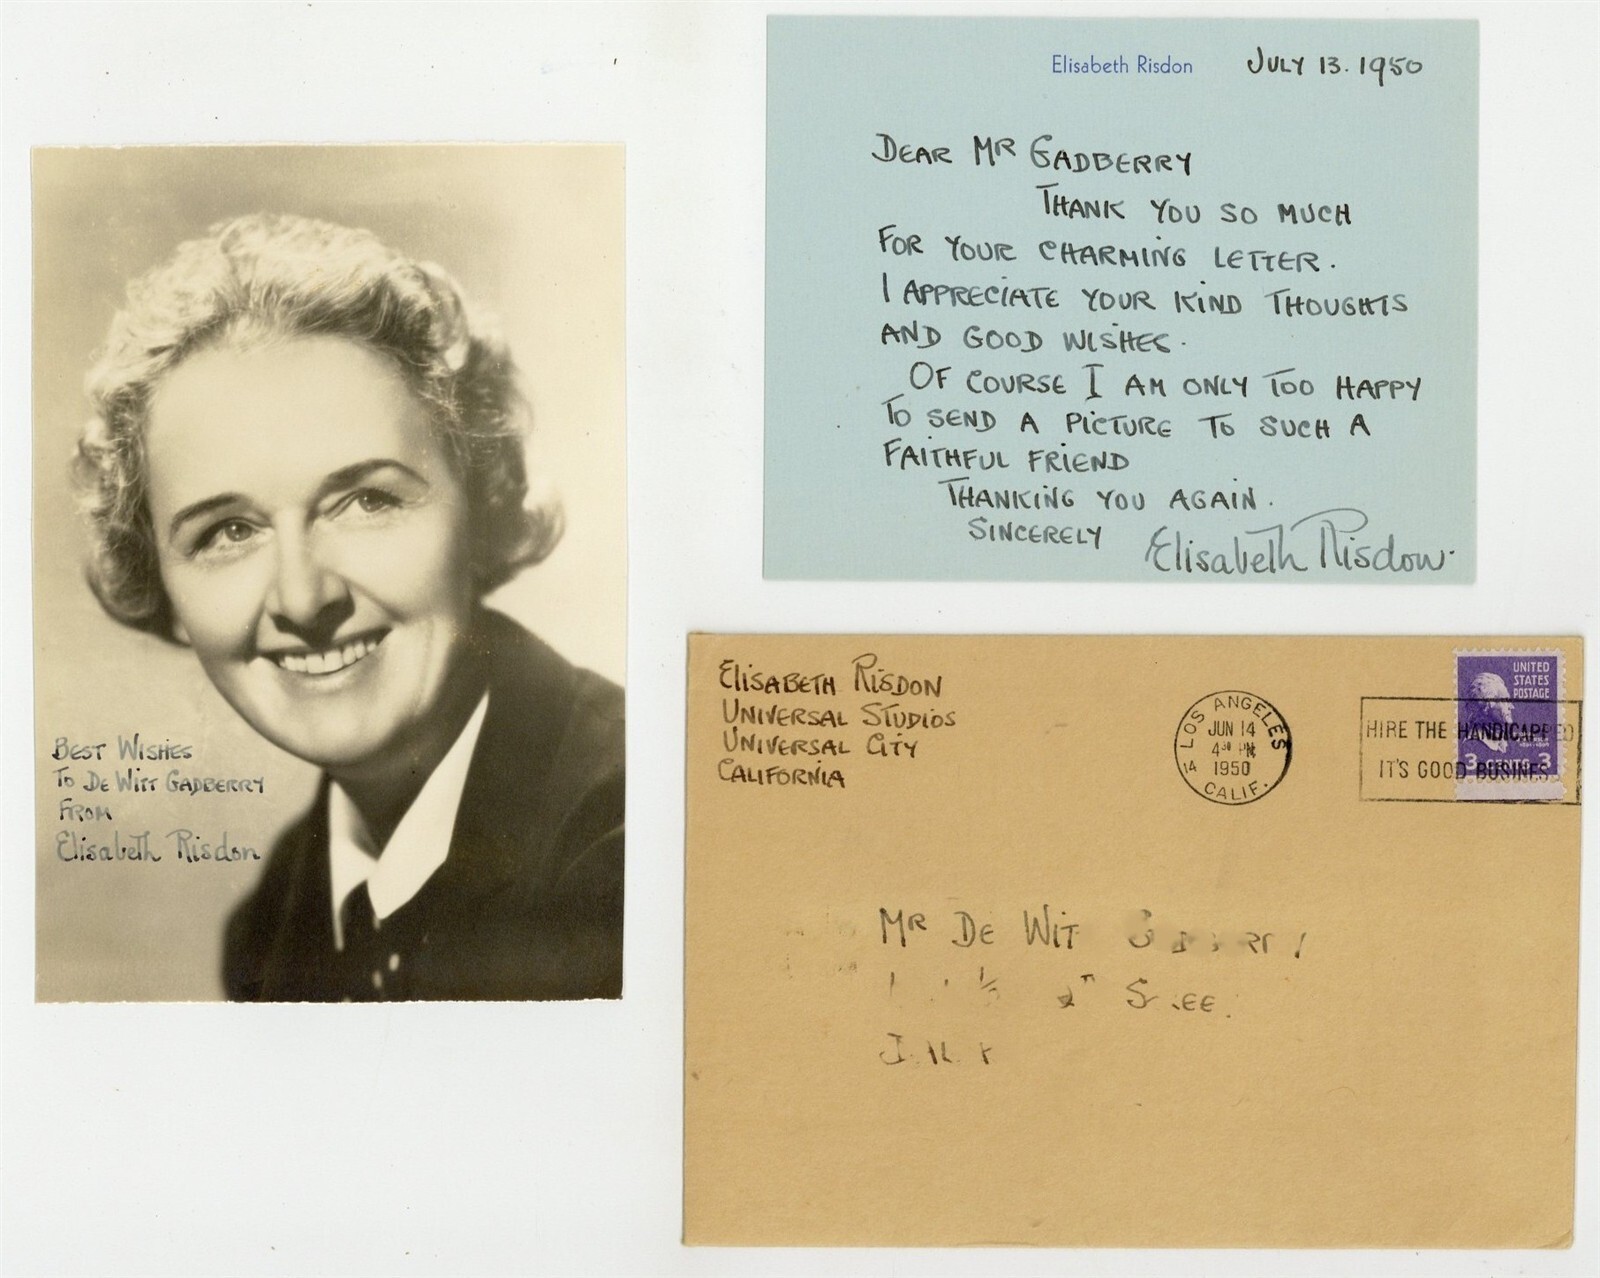 Elisabeth Risdon JULY 13. 1950
DEAR MR GADBERRY
THANK YOU SO MUCH
FOR YOUR CHARMING LETTER.
I APPRECIATE YOUR KIND THOUGHTS
AND GOOD WISHES.
OF COURSE I AM ONLY TOO HAPPY
TO SEND A PICTURE TO SUCH A
FAITHFUL FRIEND
THANKING YOU AGAIN.
SINCERELY Elisabeth Risdon.
BEST WISHES
TO DE WITT GADBERRY
FROM
Elisabeth Risdon
ELISABETH RISDON
UNIVERSAL STUDIOS
UNIVERSAL CITY
CALIFORNIA
LOS ANGELES
JUN 14
4 30 PM
1950
14 CALIF.
HIRE THE HANDICAPPED
IT'S GOOD BUSINESS
UNITED
STATES
POSTAGE
3 CENTS 3
MR DE WIT